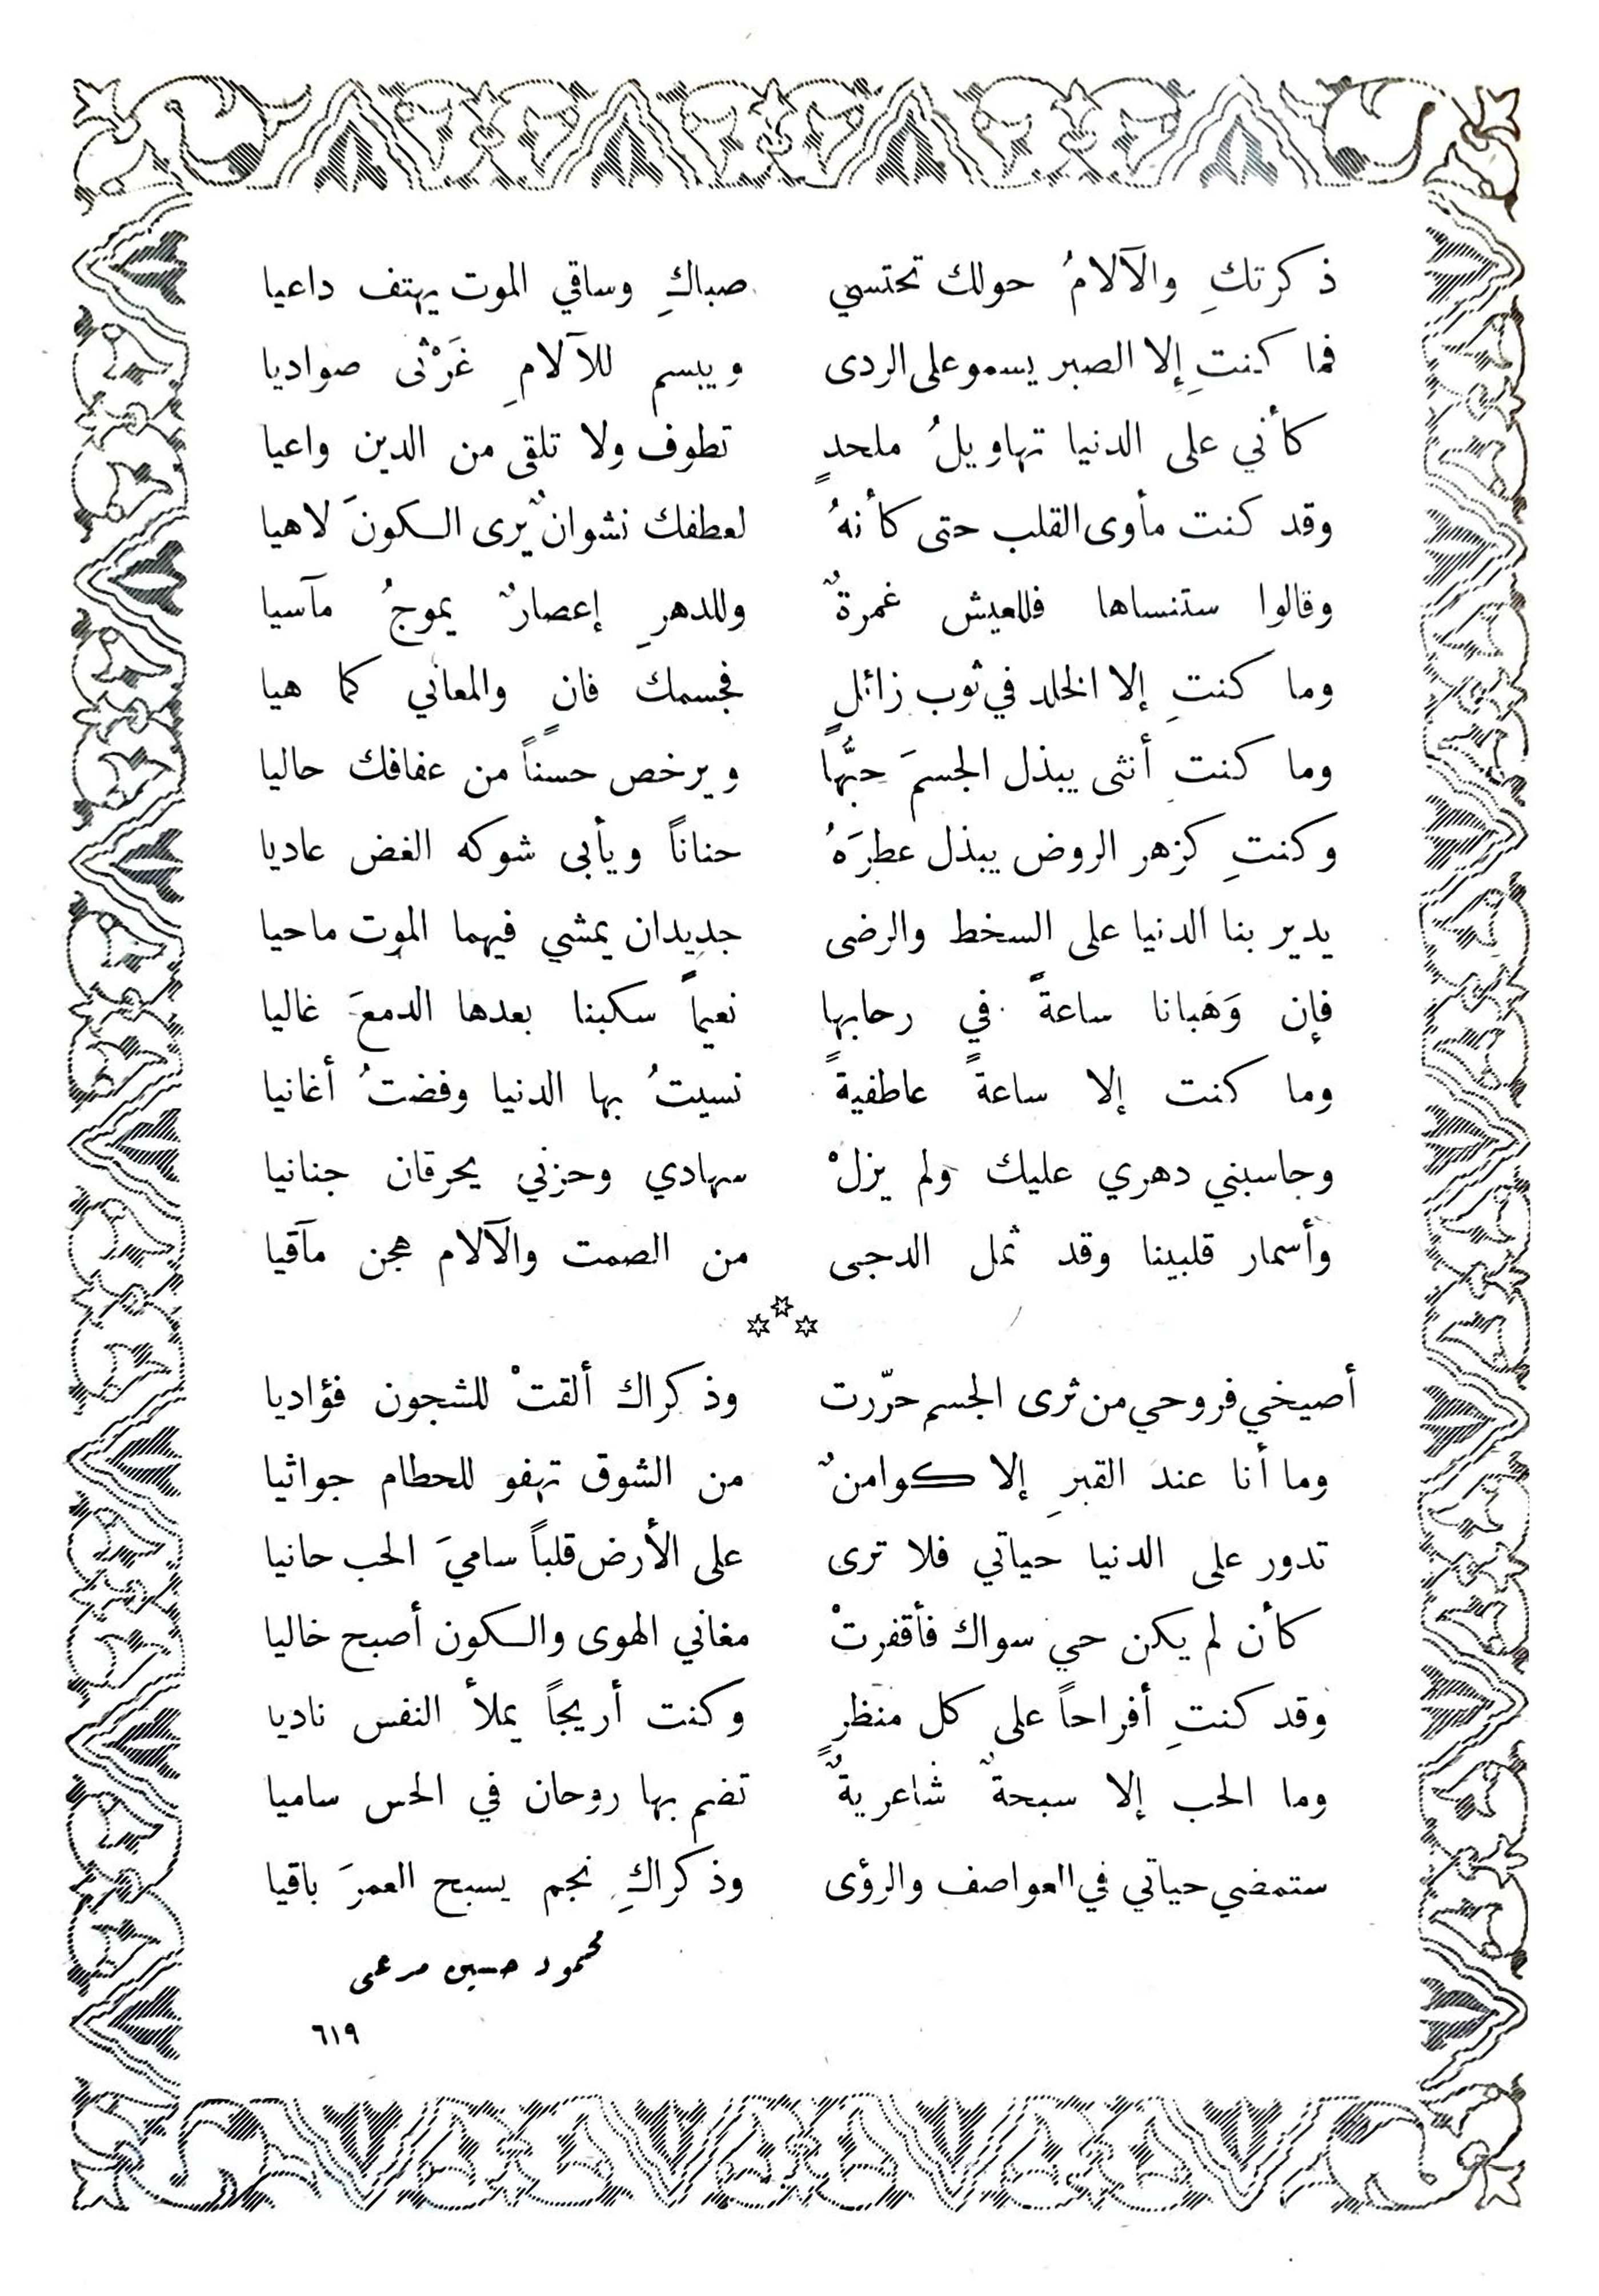 ذكرتكِ والآلامُ حولك تحتسي صباكِ وساقي الموت يهتف داعيا
فما كنتِ إلا الصبر يسمو على الردى ويبسم للآلامِ غَرْثى صواديا
كأني على الدنيا تهاويلُ ملحدٍ تطوف ولا تلقى من الدين واعيا
وقد كنت مأوى القلب حتى كأنهُ لعطفك نشوانٌ يرى الكونَ لاهيا
وقالوا ستنساها فللعيش غمرةٌ وللدهرِ إعصارٌ يموجُ مآسيا
وما كنتِ إلا الخلد في ثوب زائلٍ فجسمك فانٍ والمعاني كما هيا
وما كنتِ أنثى يبذل الجسمَ حبُّها ويرخص حسناً من عفافك حاليا
وكنتِ كزهر الروض يبذل عطرَهُ حناناً ويأبى شوكه الغض عاديا
يدير بنا الدنيا على السخط والرضى جديدان يمشي فيهما الموت ماحيا
فإن وَهَبانا ساعةً في رحابها نعيماً سكبنا بعدها الدمعَ غاليا
وما كنت إلا ساعةً عاطفيةً نسيتُ بها الدنيا وفضتُ أغانيا
وحاسبني دهري عليك ولم يزلْ سهادي وحزني يحرقان جنانيا
وأسمار قلبينا وقد ثمل الدجى من الصمت والآلام هجن مآقيا
أصيخي فروحي من ثرى الجسم حرّرت وذكراك ألقتْ للشجون فؤاديا
وما أنا عند القبرِ إلا كوامنٌ من الشوق تهفو للحطام جواثيا
تدور على الدنيا حياتي فلا ترى على الأرض قلباً ساميَ الحب حانيا
كأن لم يكن حي سواك فأقفرتْ مغاني الهوى والكون أصبح خاليا
وقد كنتِ أفراحاً على كل منظرٍ وكنت أريجاً يملأ النفس ناديا
وما الحب إلا سبحةٌ شاعريةٌ تضم بها روحان في الحس ساميا
ستمضي حياتي في العواصف والرؤى وذكراكِ نجم يسبح العمرَ باقيا
محمود حسين مرعى
٦١٩